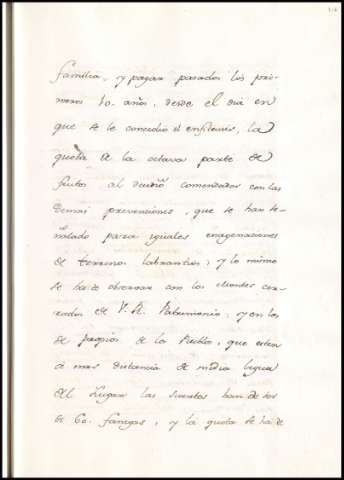 familia, y pagar pasados los pri-
meros 10. años, desde el dia en
que se le concedió el enfiteusis, la
quota de la octava parte de
frutos al dueño comendador con las
demas prevenciones, que se han se-
ñalado para iguales enagenaciones
de terrenos labrantios; y lo mismo
se ha de observar con los
de V. R. Patrimonio, y en los
de propios de los Pueblos, que esten
á mas distancia de media legua
del Lugar las suertes han de ser
de 60. fanegas, y la quota se ha de